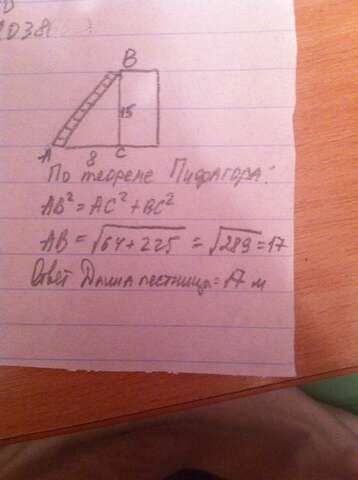 2038
B
15
A 8 C
По теореме Пифагора:
AB² = AC² + BC²
AB = √64+225 = √289 = 17
Ответ Длина лестницы = 17 м